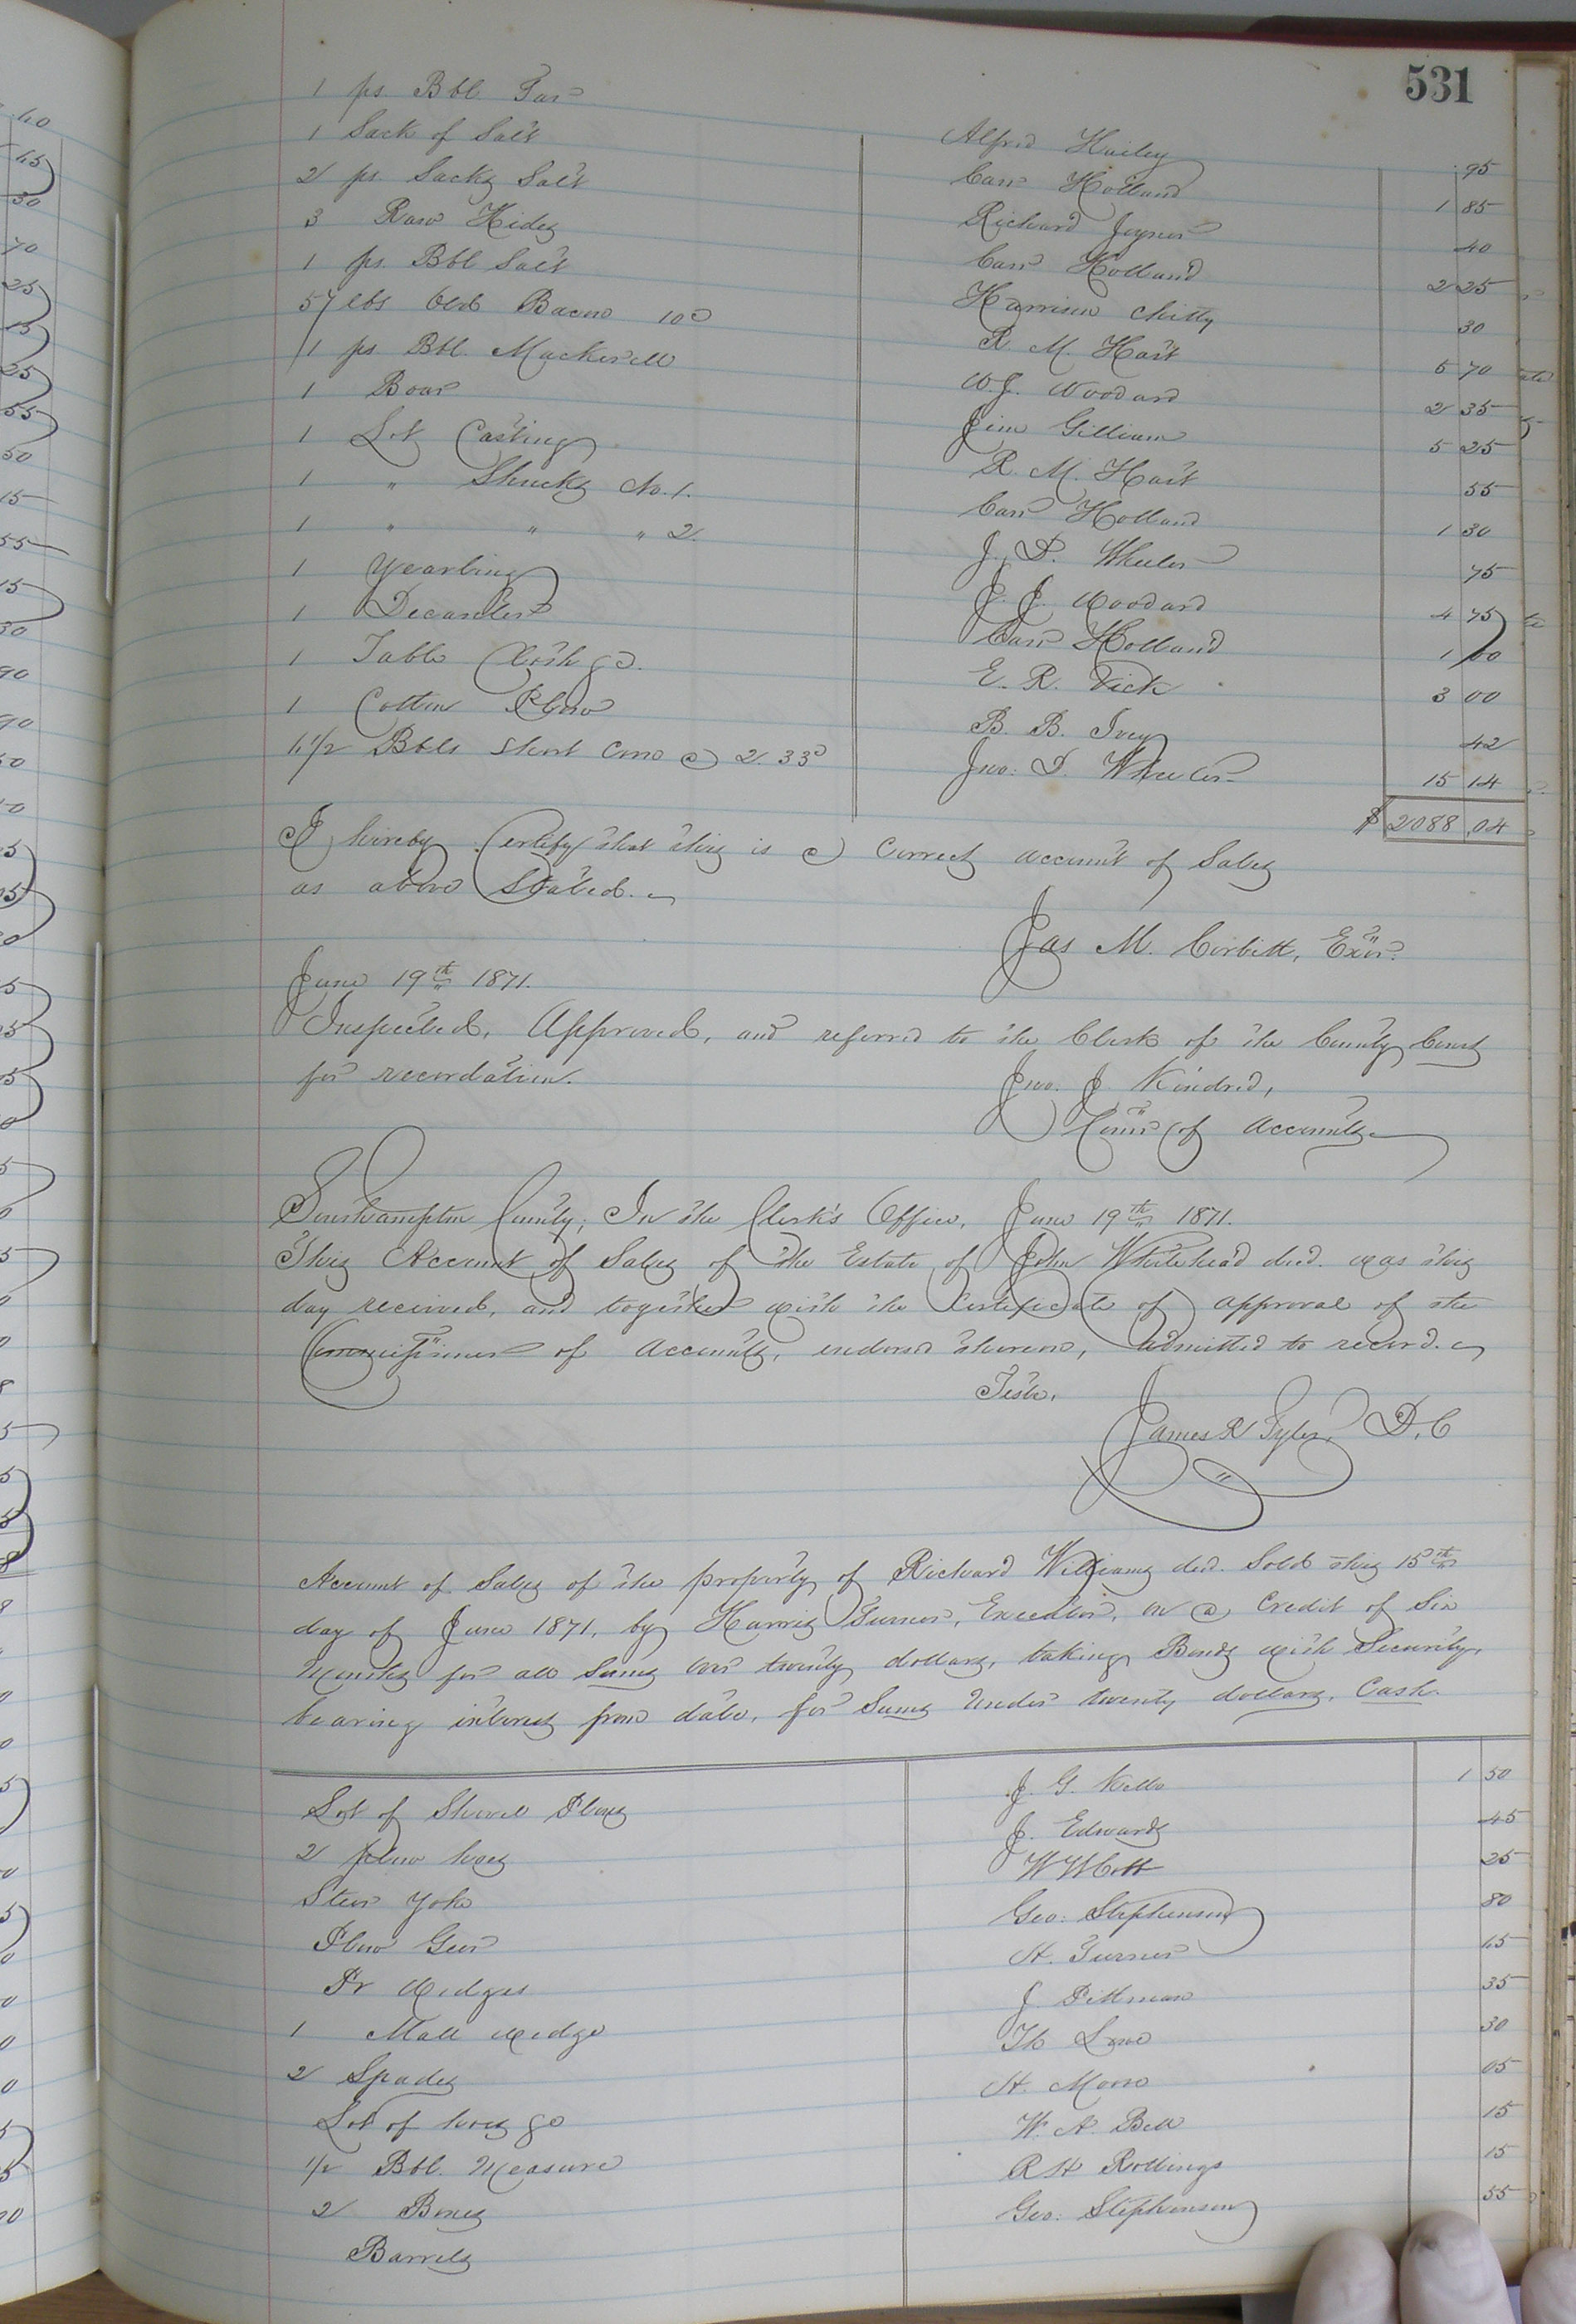 531
1 ps. Bbl. Tar Alfred Hailey 95
1 Sack of Salt Carr Holland 1 85
2 ps. Sacks Salt Richard Joyner 40
3 Raw Hides Carr Holland 2 25
1 ps. Bbl Salt Harrison Chitty 30
57 lbs Old Bacon 10c R. M. Hart 5 70
1 ps Bbl. Mackerell W. J. Woodard 2 35
1 Boar Jim Gilliam 5 25
1 Lot Castings R. M. Hart 55
1 " Shucks No. 1. Carr Holland 1 30
1 " " " 2. J. D. Wheeler 75
1 Yearling J. J. Woodard 4 75
1 Decanter Carr Holland 1 00
1 Table Cloth &c. E. R. Vick 3 00
1 Cotton Plow B. B. Ivey 42
6 1/2 Bbls Short Corn @ 2.33 Jno. D. Wheeler 15 14
$ 2088.04
I hereby Certify that this is a Correct account of Sales
as above Stated.
Jas M. Corbitt, Exor.
June 19th 1871.
Inspected, Approved, and referred to the Clerk of the County Court
for recordation.
Jno. J. Kindred,
Comr of Accounts
Southampton County; In the Clerk's Office, June 19th 1871.
This Account of Sales of the Estate of John Whitehead decd. was this
day received, and together with the Certificate of approval of the
Commissioner of Accounts, endorsed thereon, admitted to record.
Teste,
James R Tyler, D. C
Account of Sales of the property of Richard Williams decd. Sold this 15th
day of June 1871, by Harris Turner, Executor, on a Credit of Six
Months for all Sums over twenty dollars, taking Bonds with Security,
bearing interest from date, for Sums Under twenty dollars, Cash.
Lot of Shovel Plows J. G. Kello 1 50
2 plow hoes J. Edwards 45
Steer Yoke W W Cobb 25
Plow Geer Geo: Stephenson 80
Pr Wedges H. Turner 15
1 Mall wedge J. Pittman 35
2 Spades Th Lowe 30
Lot of hoes &c H. Moore 05
1/2 Bbl. Measure W. A. Bell 15
2 Boxes R H Rollings 15
Barrels Geo: Stephenson 55